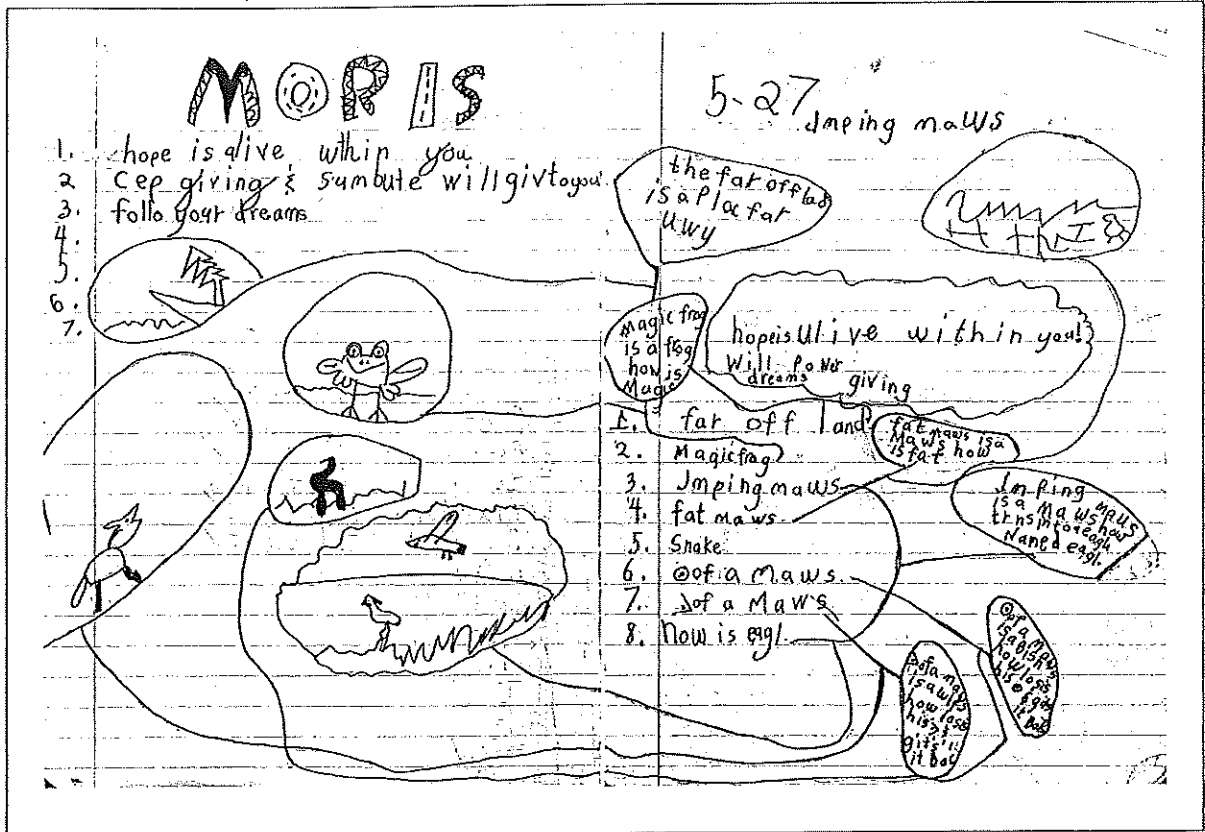 MORIS
1. hope is alive within you
2 Cep giving & Sumbute will giv to you
3. follo your dreams
4.
5.
6.
7.
5-27
Jmping maws
the far off lad
is a Plac far
uwy
magic frog
is a frog
how is
Magic
hope is Ulive within you!
Will Power
dreams giving
1. far off land
2. Magic frog
3. Jmping maws
4. fat maws
5. Snake
6. ʘof a Maws
7. of a Maws
8. how is eagl
fat maws is a
Maws how
is fat
Jmping maws
is a Maws how
trns into eagl.
Named eagl.
of a maws
how lose
his
git's
it bac
of a maws
is a bish
how losis
his
it bac